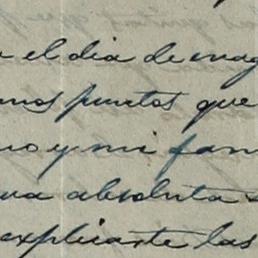 el dia de
puntos que
y mi fam
absoluta
explicaste las